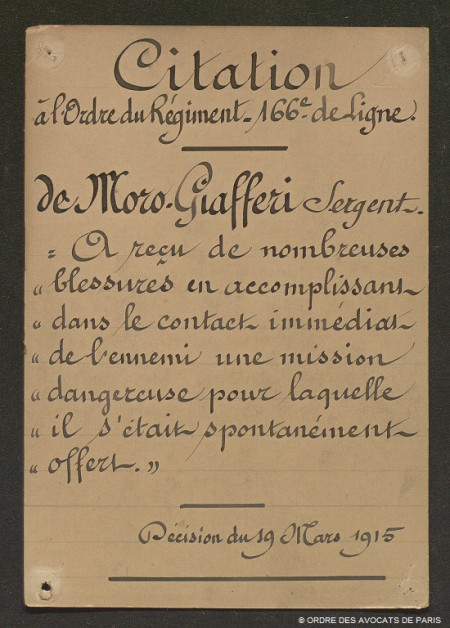 Citation
à l'Ordre du Régiment - 166e de Ligne.
de Moro-Giafferi Sergent.
" A reçu de nombreuses
" blessures en accomplissant
" dans le contact immédiat
" de l'ennemi une mission
" dangereuse pour laquelle
" il s'était spontanément
" offert. "
Décision du 19 Mars 1915
© ORDRE DES AVOCATS DE PARIS